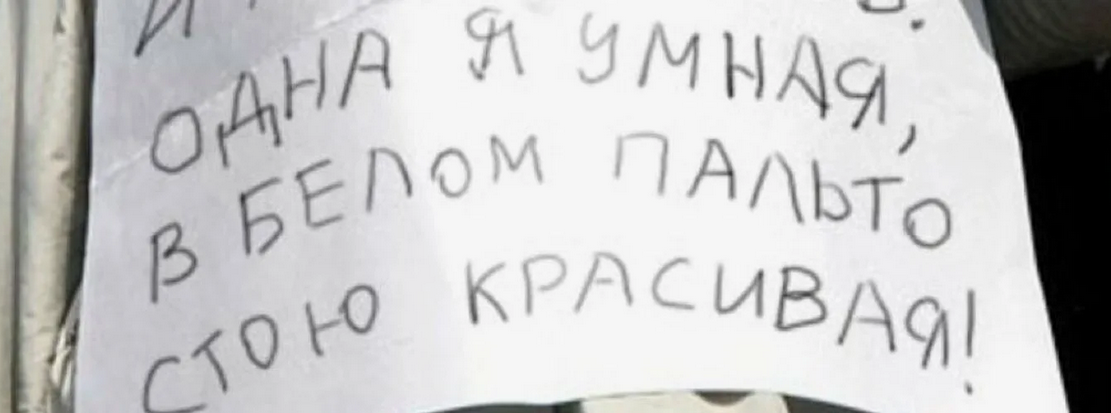 ОДНА Я УМНАЯ,
В БЕЛОМ ПАЛЬТО
СТОЮ КРАСИВАЯ!